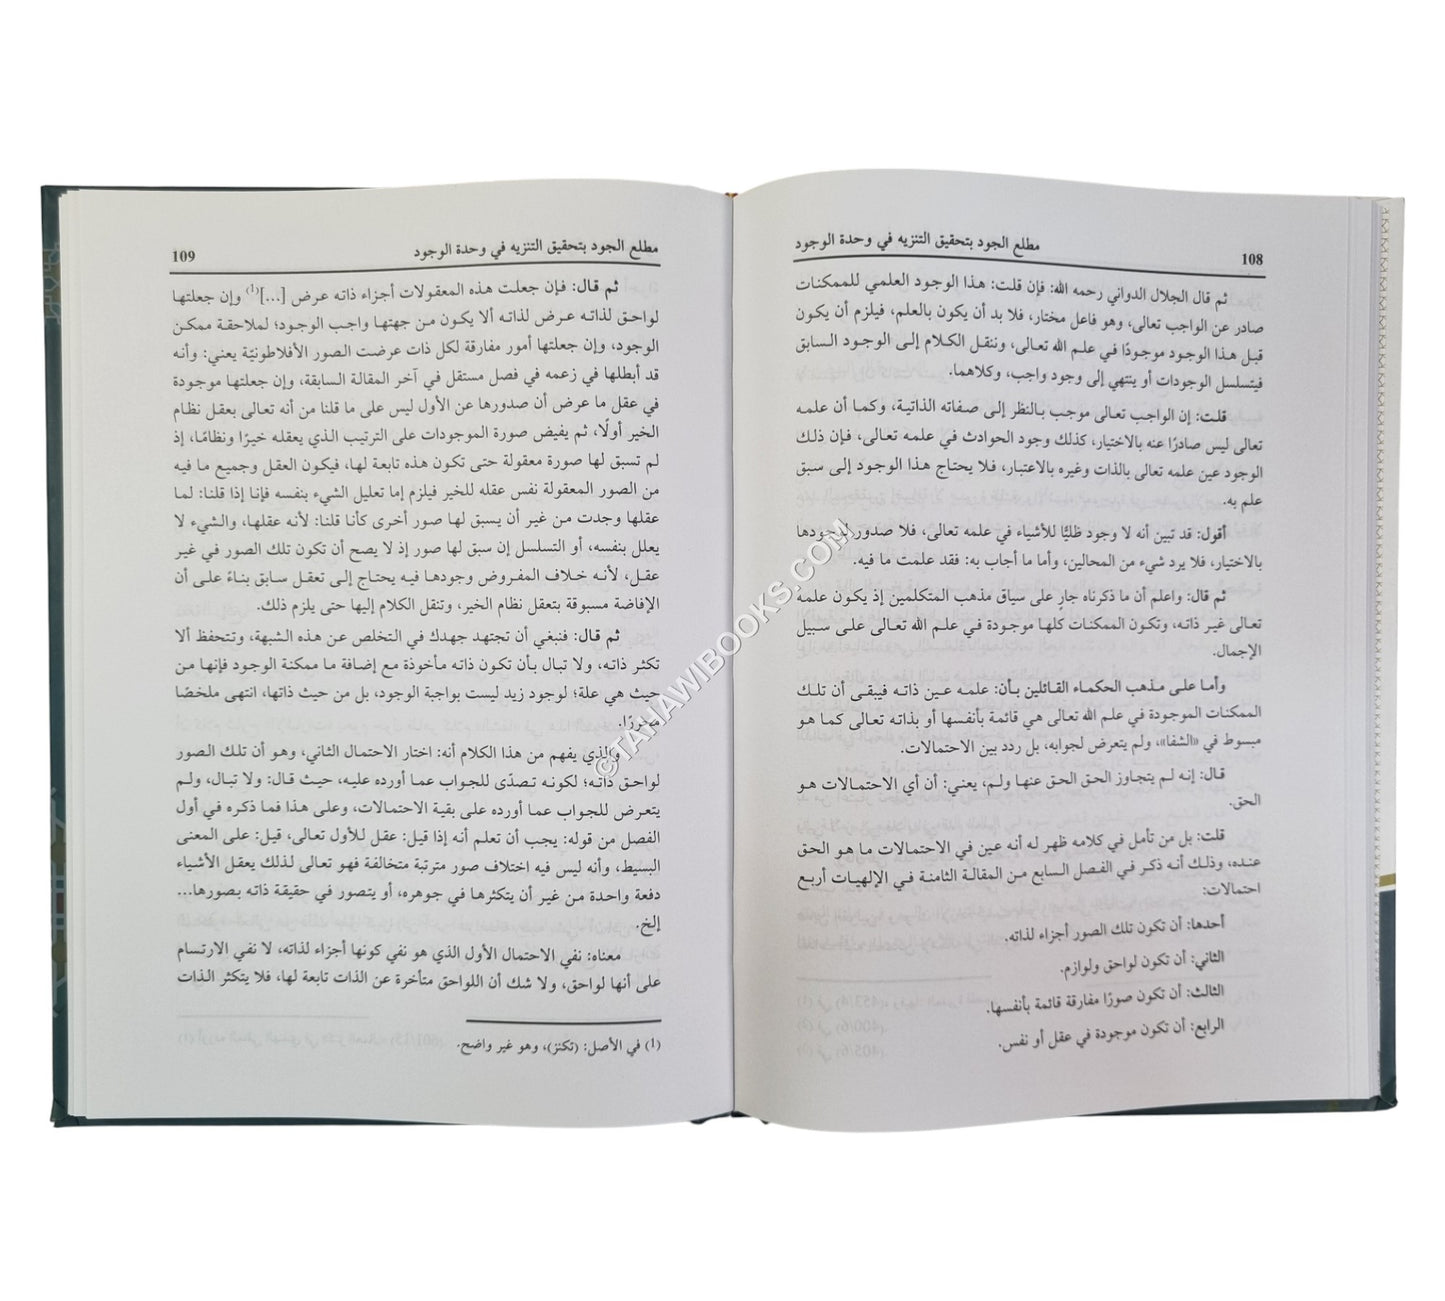 108
مطلع الجود بتحقيق التنزيه في وحدة الوجود
ثم قال الجلال الدواني رحمه الله: فإن قلت: هذا الوجود العلمي للممكنات
صادر عن الواجب تعالى، وهو فاعل مختار، فلا بد أن يكون بالعلم، فيلزم أن يكون
قبل هذا الوجود موجودًا في علم الله تعالى، وننقل الكلام إلى الوجود السابق
فيتسلسل الوجودات أو ينتهي إلى وجود واجب، وكلاهما.
قلت: إن الواجب تعالى موجب بالنظر إلى صفاته الذاتية، وكما أن علمه
تعالى ليس صادرًا عنه بالاختيار، كذلك وجود الحوادث في علمه تعالى، فإن ذلك
الوجود عين علمه تعالى بالذات وغيره بالاعتبار، فلا يحتاج هذا الوجود إلى سبق
علم به.
أقول: قد تبين أنه لا وجود ظليًّا للأشياء في علمه تعالى، فلا صدور لوجودها
بالاختيار، فلا يرد شيء من المحالين، وأما ما أجاب به: فقد علمت ما فيه.
ثم قال: واعلم أن ما ذكرناه جارٍ على سياق مذهب المتكلمين إذ يكون علمه
تعالى غير ذاته، وتكون الممكنات كلها موجودة في علم الله تعالى على سبيل
الإجمال.
وأما على مذهب الحكماء القائلين بأن: علمه عين ذاته فيبقى أن تلك
الممكنات الموجودة في علم الله تعالى هي قائمة بأنفسها أو بذاته تعالى كما هو
مبسوط في «الشفا»، ولم يتعرض لجوابه، بل ردد بين الاحتمالات.
قال: إنه لم يتجاوز الحق الحق عنها ولم، يعني: أن أي الاحتمالات هو
الحق.
قلت: بل من تأمل في كلامه ظهر له أنه عين في الاحتمالات ما هو الحق
عنده، وذلك أنه ذكر في الفصل السابع من المقالة الثامنة في الإلهيات أربع
احتمالات:
أحدها: أن تكون تلك الصور أجزاء لذاته.
الثاني: أن تكون لواحق ولوازم.
الثالث: أن تكون صورًا مفارقة قائمة بأنفسها.
الرابع: أن تكون موجودة في عقل أو نفس.
مطلع الجود بتحقيق التنزيه في وحدة الوجود
109
ثم قال: فإن جعلت هذه المعقولات أجزاء ذاته عرض [...](1) وإن جعلتها
لواحق لذاته عرض لذاته ألا يكون من جهتها واجب الوجود؛ لملاحقة ممكن
الوجود، وإن جعلتها أمور مفارقة لكل ذات عرضت الصور الأفلاطونيّة يعني: وأنه
قد أبطلها في زعمه في فصل مستقل في آخر المقالة السابقة، وإن جعلتها موجودة
في عقل ما عرض أن صدورها عن الأول ليس على ما قلنا من أنه تعالى بعقل نظام
الخير أولًا، ثم يفيض صورة الموجودات على الترتيب الذي يعقله خيرًا ونظامًا، إذ
لم تسبق لها صورة معقولة حتى تكون هذه تابعة لها، فيكون العقل وجميع ما فيه
من الصور المعقولة نفس عقله للخير فيلزم إما تعليل الشيء بنفسه فإنا إذا قلنا: لما
عقلها وجدت من غير أن يسبق لها صور أخرى كأنا قلنا: لأنه عقلها، والشيء لا
يعلل بنفسه، أو التسلسل إن سبق لها صور إذ لا يصح أن تكون تلك الصور في غير
عقل، لأنه خلاف المفروض وجودها فيه يحتاج إلى تعقل سابق بناءً على أن
الإفاضة مسبوقة بتعقل نظام الخير، وتنقل الكلام إليها حتى يلزم ذلك.
ثم قال: فنبغي أن تجتهد جهدك في التخلص عن هذه الشبهة، وتتحفظ ألا
تكثر ذاته، ولا تبال بأن تكون ذاته مأخوذة مع إضافة ما ممكنة الوجود فإنها من
حيث هي علة؛ لوجود زيد ليست بواجبة الوجود، بل من حيث ذاتها، انتهى ملخصًا
محررًا.
والذي يفهم من هذا الكلام أنه: اختار الاحتمال الثاني، وهو أن تلك الصور
لواحق ذاته؛ لكونه تصدّى للجواب عما أورده عليه، حيث قال: ولا تبال، ولم
يتعرض للجواب عما أورده على بقية الاحتمالات، وعلى هذا فما ذكره في أول
الفصل من قوله: يجب أن تعلم أنه إذا قيل: عقل للأول تعالى، قيل: على المعنى
البسيط، وأنه ليس فيه اختلاف صور مترتبة متخالفة فهو تعالى لذلك يعقل الأشياء
دفعة واحدة من غير أن يتكثرها في جوهره، أو يتصور في حقيقة ذاته بصورها...
إلخ.
معناه: نفي الاحتمال الأول الذي هو نفي كونها أجزاء لذاته، لا نفي الارتسام
على أنها لواحق، ولا شك أن اللواحق متأخرة عن الذات تابعة لها، فلا يتكثر الذات
(1) في الأصل: (تكنز)، وهو غير واضح.
©TAHAWIBOOKS.COM